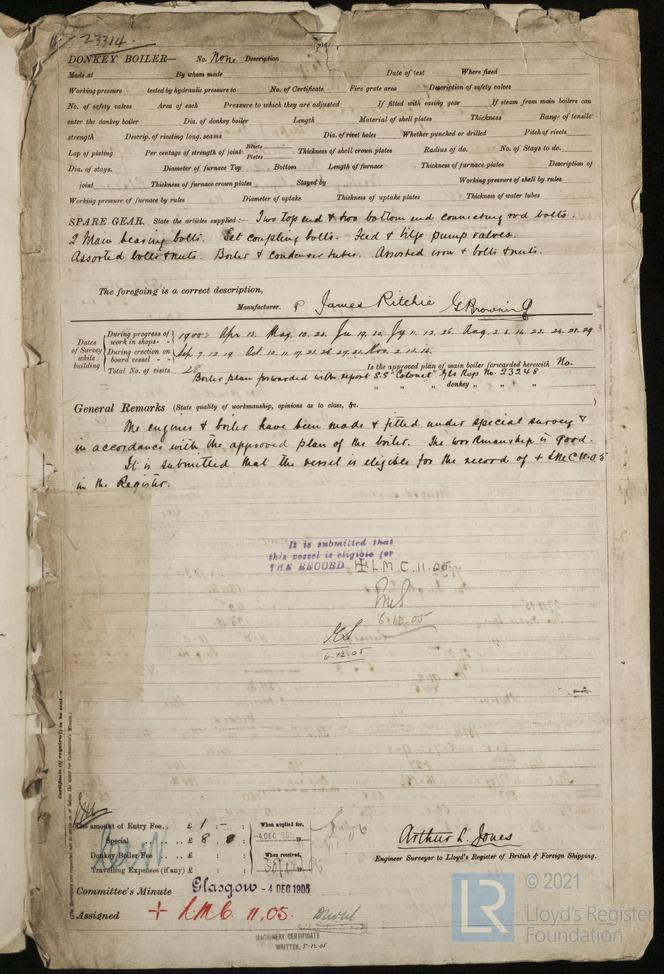 23314.
DONKEY BOILER— No. None Description
Made at By whom made Date of test Where fixed
Working pressure tested by hydraulic pressure to No. of Certificate Fire grate area Description of safety valves
No. of safety valves Area of each Pressure to which they are adjusted If fitted with easing gear If steam from main boilers can
enter the donkey boiler Dia. of donkey boiler Length Material of shell plates Thickness Range of tensile
strength Descrip. of riveting long. seams Dia. of rivet holes Whether punched or drilled Pitch of rivets
Lap of plating Per centage of strength of joint Rivets Plates Thickness of shell crown plates Radius of do. No. of Stays to do.
Dia. of stays. Diameter of furnace Top Bottom Length of furnace Thickness of furnace plates Description of
joint Thickness of furnace crown plates Stayed by Working pressure of shell by rules
Working pressure of furnace by rules Diameter of uptake Thickness of uptake plates Thickness of water tubes
SPARE GEAR. State the articles supplied:— Two top end & two bottom end connecting rod bolts.
2 Main bearing bolts. Set coupling bolts. Feed & bilge pump valves.
Assorted bolts & nuts. Boiler & condenser tubes. Assorted iron & bolts & nuts.
The foregoing is a correct description,
Manufacturer. P James Ritchie G Browning
Dates of Survey while building
During progress of work in shops- - 1905: Apr 13. May 10. 23. Jy 1. 12. 26. Aug. 2. 8. 14. 23. 24. 28. 29
During erection on board vessel - - Sep. 7. 12. 19. Oct. 10. 11. Nov. 2. 12. 14.
Total No. of visits 28 Is the approved plan of main boiler forwarded herewith No.
Boiler plan forwarded with report S.S "Colonel" Gls Rep No. 23248
" " " donkey " " "
General Remarks (State quality of workmanship, opinions as to class, &c.
The engines & boiler have been made & fitted under special survey &
in accordance with the approved plan of the boiler. The workmanship is good.
It is submitted that the vessel is eligible for the record of + LMC 11.05
in the Register.
It is submitted that
this vessel is eligible for
THE RECORD + L.M.C. 11.05
6.12.05
6.12.05
Certificate (if required) to be sent
The amount of Entry Fee.. £ 1 : - :
Special .. .. £ 8 : 8 :
Donkey Boiler Fee .. .. £ : :
Travelling Expenses (if any) £ : :
When applied for,
-4 DEC 1905
When received,
Arthur L. Jones
Engineer Surveyor to Lloyd's Register of British & Foreign Shipping.
Committee's Minute Glasgow - 4 DEC 1905
Assigned + L.M.C. 11.05.
MACHINERY CERTIFICATE
WRITTEN. 5-12-05
LR © 2021
Lloyd's Register
Foundation